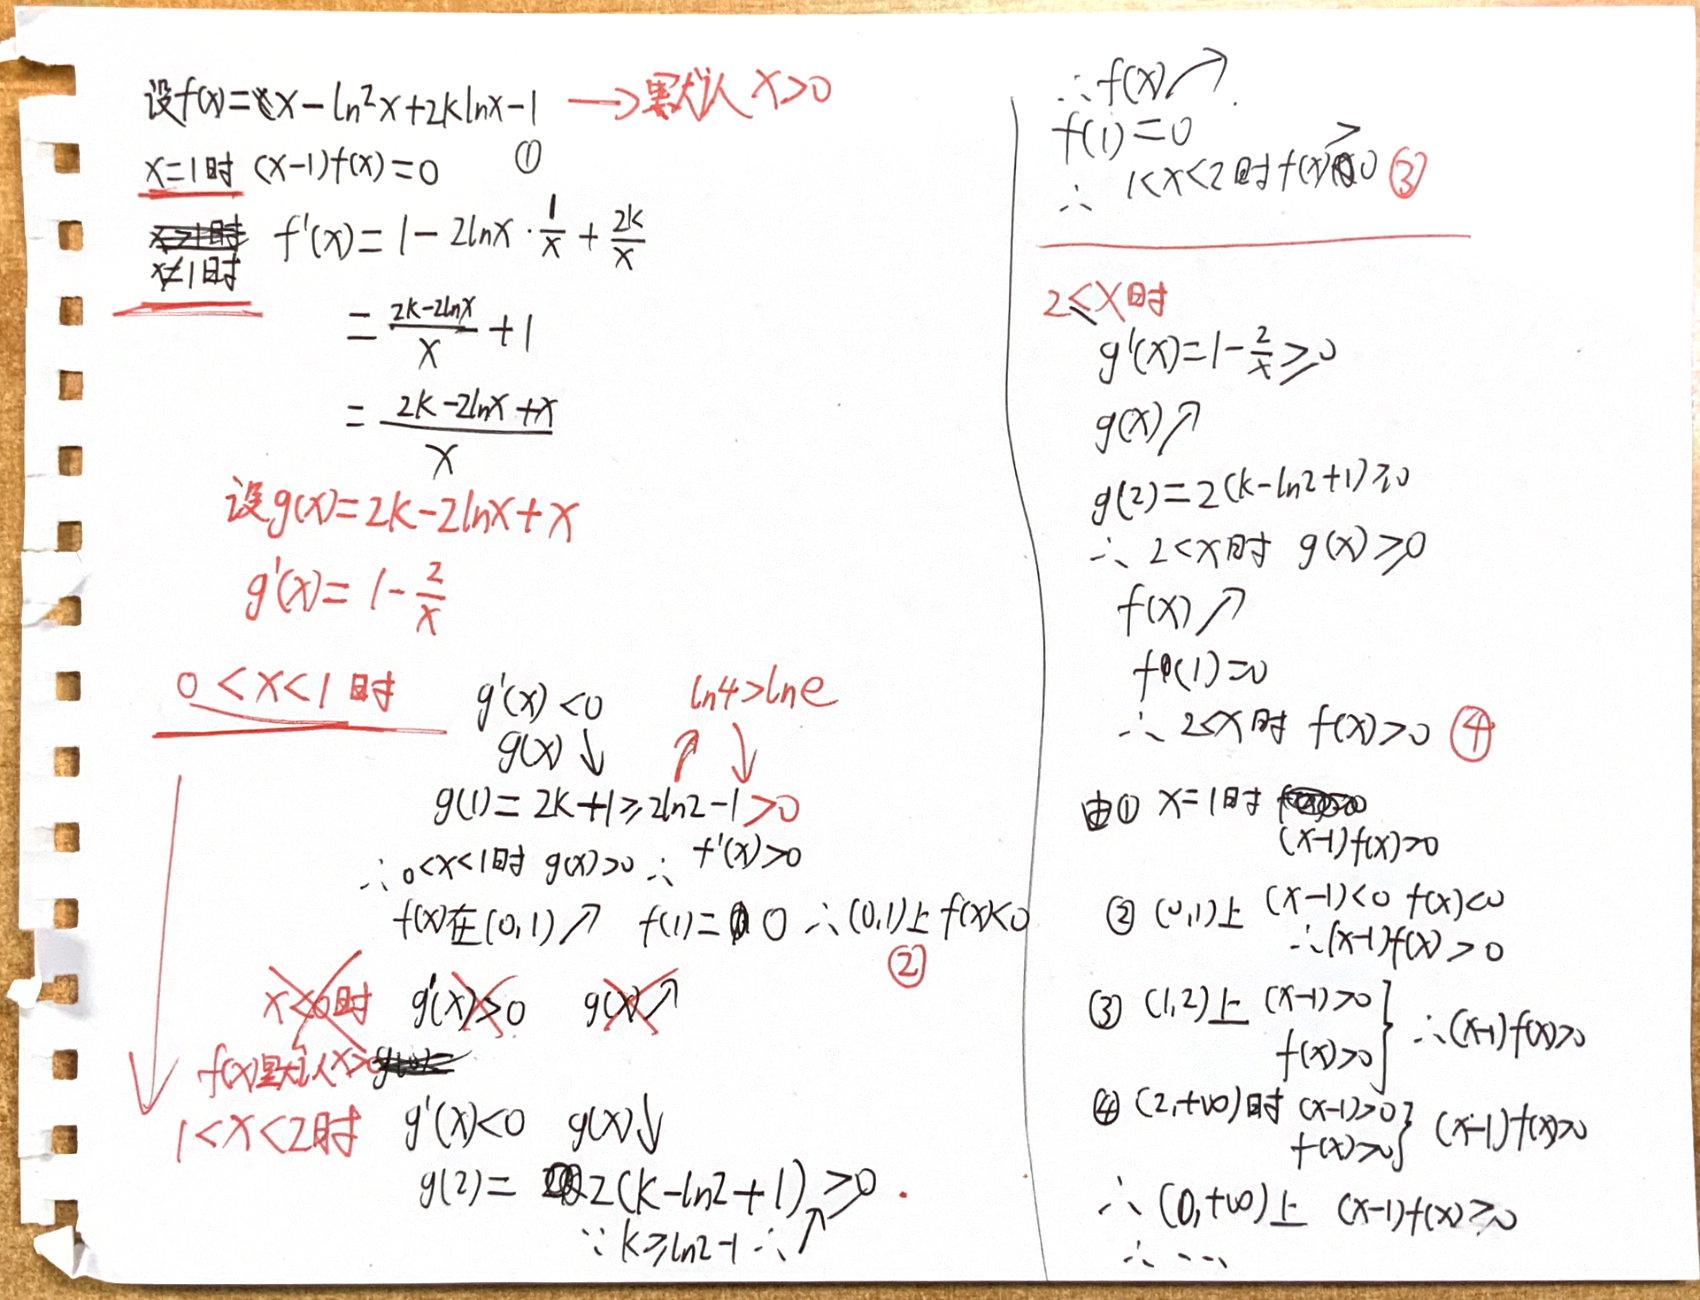 设f(x)=x-ln²x+2klnx-1 →默认 x>0
x=1时 (x-1)f(x)=0 ①
x≠1时 f'(x)=1-2lnx·1/x+2k/x
=(2k-2lnx)/x+1
=(2k-2lnx+x)/x
设g(x)=2k-2lnx+x
g'(x)=1-2/x
0<x<1时 g'(x)<0 ln4>lne
g(x)↓
g(1)=2k+1≥2ln2-1>0
∴0<x<1时 g(x)>0 ∴ f'(x)>0
f(x)在(0,1)↗ f(1)=0 ∴(0,1)上f(x)<0
②
x<0时 g'(x)>0 g(x)↗
f(x)默认x>0
1<x<2时 g'(x)<0 g(x)↓
g(2)=2(k-ln2+1)≥0
∵k≥ln2-1 ∴↗
∴f(x)↗
f(1)=0
∴ 1<x<2时f(x)>0 ③
2≤x时
g'(x)=1-2/x≥0
g(x)↗
g(2)=2(k-ln2+1)≥0
∴ 2<x时 g(x)≥0
f(x)↗
f(1)=0
∴ 2<x时 f(x)>0 ④
由① x=1时
(x-1)f(x)>0
② (0,1)上 (x-1)<0 f(x)<0
∴(x-1)f(x)>0
③ (1,2)上 (x-1)>0
f(x)>0 } ∴(x-1)f(x)>0
④ (2,+∞)时 (x-1)>0
f(x)>0 } (x-1)f(x)>0
∴ (0,+∞)上 (x-1)f(x)≥0
∴ ……